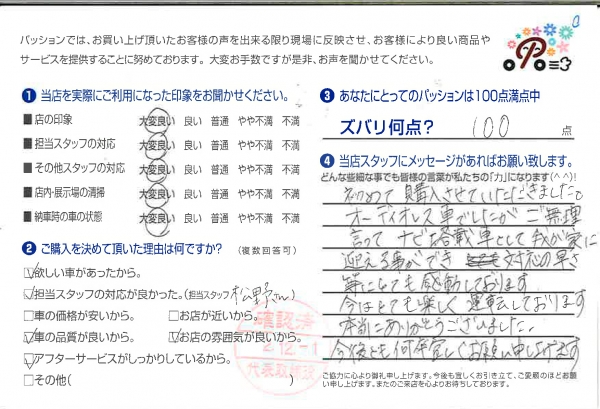 パッションでは、お買い上げ頂いたお客様の声を出来る限り現場に反映させ、お客様により良い商品や
サービスを提供することに努めております。 大変お手数ですが是非、お声を聞かせてください。
❶ 当店を実際にご利用になった印象をお聞かせください。
■ 店の印象 大変良い 良い 普通 やや不満 不満
■ 担当スタッフの対応 大変良い 良い 普通 やや不満 不満
■ その他スタッフの対応 大変良い 良い 普通 やや不満 不満
■ 店内・展示場の清掃 大変良い 良い 普通 やや不満 不満
■ 納車時の車の状態 大変良い 良い 普通 やや不満 不満
❷ ご購入を決めて頂いた理由は何ですか? (複数回答可)
☑欲しい車があったから。
☑担当スタッフの対応が良かった。(担当スタッフ 松野さん)
□車の価格が安いから。 □お店が近いから。
☑車の品質が良いから。 ☑お店の雰囲気が良いから。
☑アフターサービスがしっかりしているから。
□その他( )
確認済
2.12.-1
代表取締役
❸ あなたにとってのパッションは100点満点中
ズバリ何点? 100 点
❹ 当店スタッフにメッセージがあればお願い致します。
どんな些細な事でも皆様の言葉が私たちの「力」になります(^^)!
初めて購入させていただきました。
オーディオレス車でしたが ご無理
言って ナビ搭載車として我が家に
迎える事ができ 対応の早さ
等にとても感動しております
今はとても楽しく 運転しております
本当にありがとうございました。
今後とも何卒宜しくお願い申し上げます
ご協力に心より御礼申し上げます。今後も宜しくお引き立て、ご愛顧のほどお願い申し上げます。またのご来店を心よりお待ちしております。